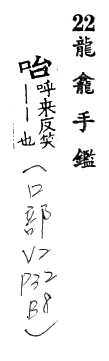 22龍龕手鑑
咍呼来反笑
——也
(口部V2
P32
B8)